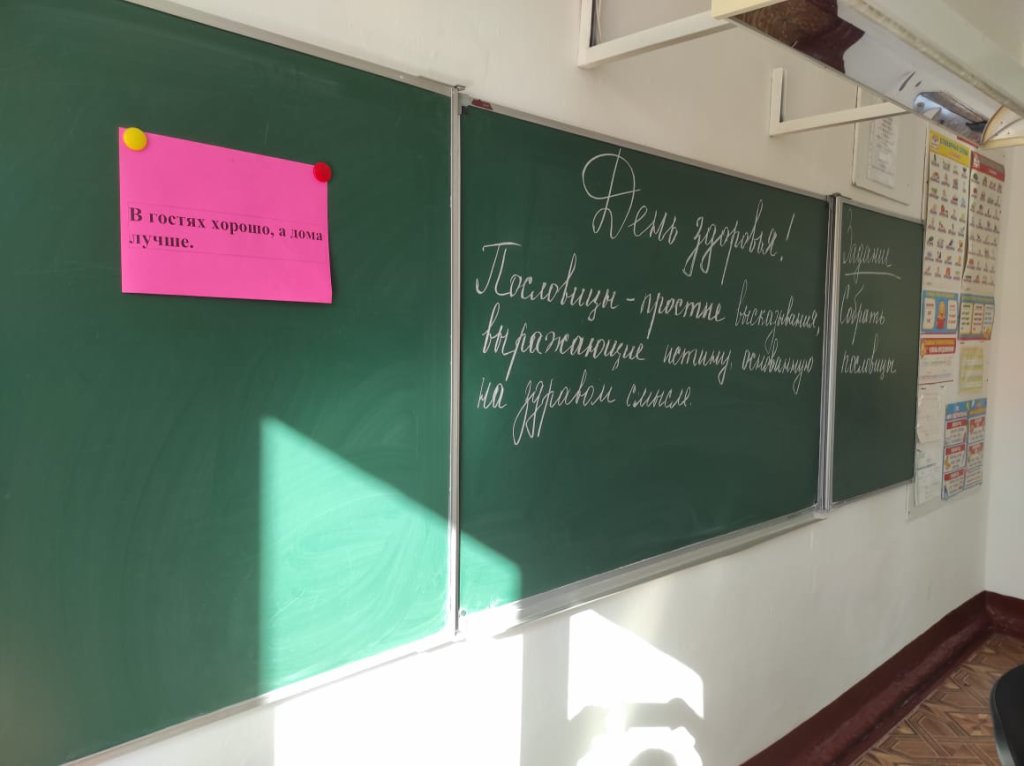 В гостях хорошо, а дома
лучше.
День здоровья!
Пословицы - простые высказывания,
выражающие истину, основанную
на здравом смысле.
Задание
Собрать
пословицы